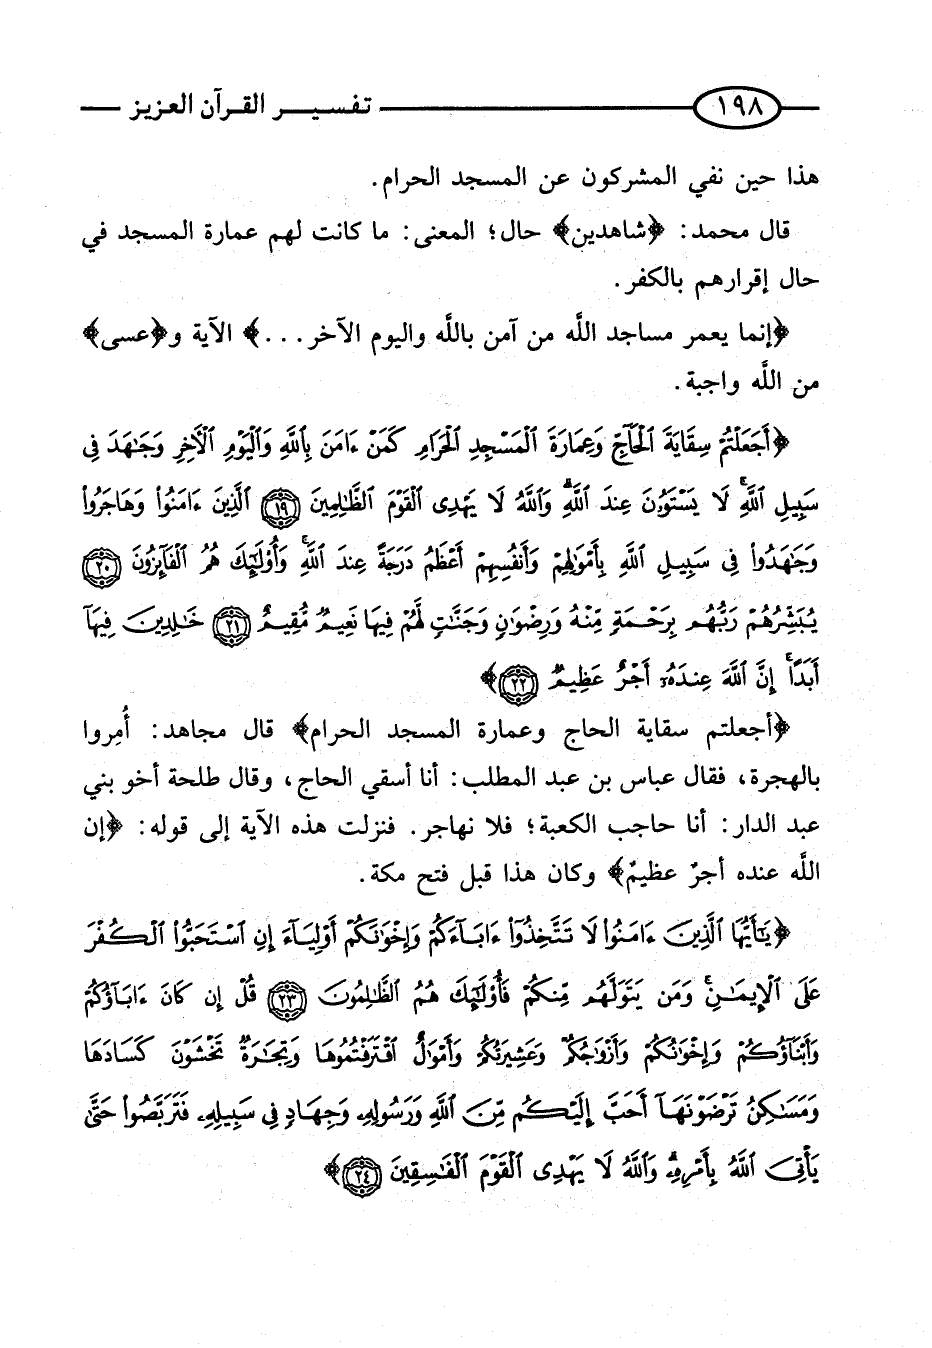 ١٩٨ تفسير القرآن العزيز
هذا حين نفي المشركون عن المسجد الحرام.
قال محمد: ﴿شاهدين﴾ حال؛ المعنى: ما كانت لهم عمارة المسجد في
حال إقرارهم بالكفر.
﴿إنما يعمر مساجد اللَّه من آمن باللَّه واليوم الآخر...﴾ الآية و﴿عسى﴾
من اللَّه واجبة.
﴿أَجَعَلْتُمْ سِقَايَةَ ٱلْحَآجِّ وَعِمَارَةَ ٱلْمَسْجِدِ ٱلْحَرَامِ كَمَنْ ءَامَنَ بِٱللَّهِ وَٱلْيَوْمِ ٱلْأَخِرِ وَجَٰهَدَ فِى
سَبِيلِ ٱللَّهِۚ لَا يَسْتَوُۥنَ عِندَ ٱللَّهِۗ وَٱللَّهُ لَا يَهْدِى ٱلْقَوْمَ ٱلظَّٰلِمِينَ ١٩ ٱلَّذِينَ ءَامَنُوا۟ وَهَاجَرُوا۟
وَجَٰهَدُوا۟ فِى سَبِيلِ ٱللَّهِ بِأَمْوَٰلِهِمْ وَأَنفُسِهِمْ أَعْظَمُ دَرَجَةً عِندَ ٱللَّهِۚ وَأُو۟لَٰٓئِكَ هُمُ ٱلْفَآئِزُونَ ٢٠
يُبَشِّرُهُمْ رَبُّهُم بِرَحْمَةٍ مِّنْهُ وَرِضْوَٰنٍ وَجَنَّٰتٍ لَّهُمْ فِيهَا نَعِيمٌ مُّقِيمٌ ٢١ خَٰلِدِينَ فِيهَآ
أَبَدًاۚ إِنَّ ٱللَّهَ عِندَهُۥٓ أَجْرٌ عَظِيمٌ ٢٢﴾
﴿أجعلتم سقاية الحاج وعمارة المسجد الحرام﴾ قال مجاهد: أُمِروا
بالهجرة، فقال عباس بن عبد المطلب: أنا أسقي الحاج، وقال طلحة أخو بني
عبد الدار: أنا حاجب الكعبة؛ فلا نهاجر. فنزلت هذه الآية إلى قوله: ﴿إن
اللَّه عنده أجرٌ عظيمٌ﴾ وكان هذا قبل فتح مكة.
﴿يَٰٓأَيُّهَا ٱلَّذِينَ ءَامَنُوا۟ لَا تَتَّخِذُوٓا۟ ءَابَآءَكُمْ وَإِخْوَٰنَكُمْ أَوْلِيَآءَ إِنِ ٱسْتَحَبُّوا۟ ٱلْكُفْرَ
عَلَى ٱلْإِيمَٰنِۚ وَمَن يَتَوَلَّهُم مِّنكُمْ فَأُو۟لَٰٓئِكَ هُمُ ٱلظَّٰلِمُونَ ٢٣ قُلْ إِن كَانَ ءَابَآؤُكُمْ
وَأَبْنَآؤُكُمْ وَإِخْوَٰنُكُمْ وَأَزْوَٰجُكُمْ وَعَشِيرَتُكُمْ وَأَمْوَٰلٌ ٱقْتَرَفْتُمُوهَا وَتِجَٰرَةٌ تَخْشَوْنَ كَسَادَهَا
وَمَسَٰكِنُ تَرْضَوْنَهَآ أَحَبَّ إِلَيْكُم مِّنَ ٱللَّهِ وَرَسُولِهِۦ وَجِهَادٍ فِى سَبِيلِهِۦ فَتَرَبَّصُوا۟ حَتَّىٰ
يَأْتِىَ ٱللَّهُ بِأَمْرِهِۦۗ وَٱللَّهُ لَا يَهْدِى ٱلْقَوْمَ ٱلْفَٰسِقِينَ ٢٤﴾